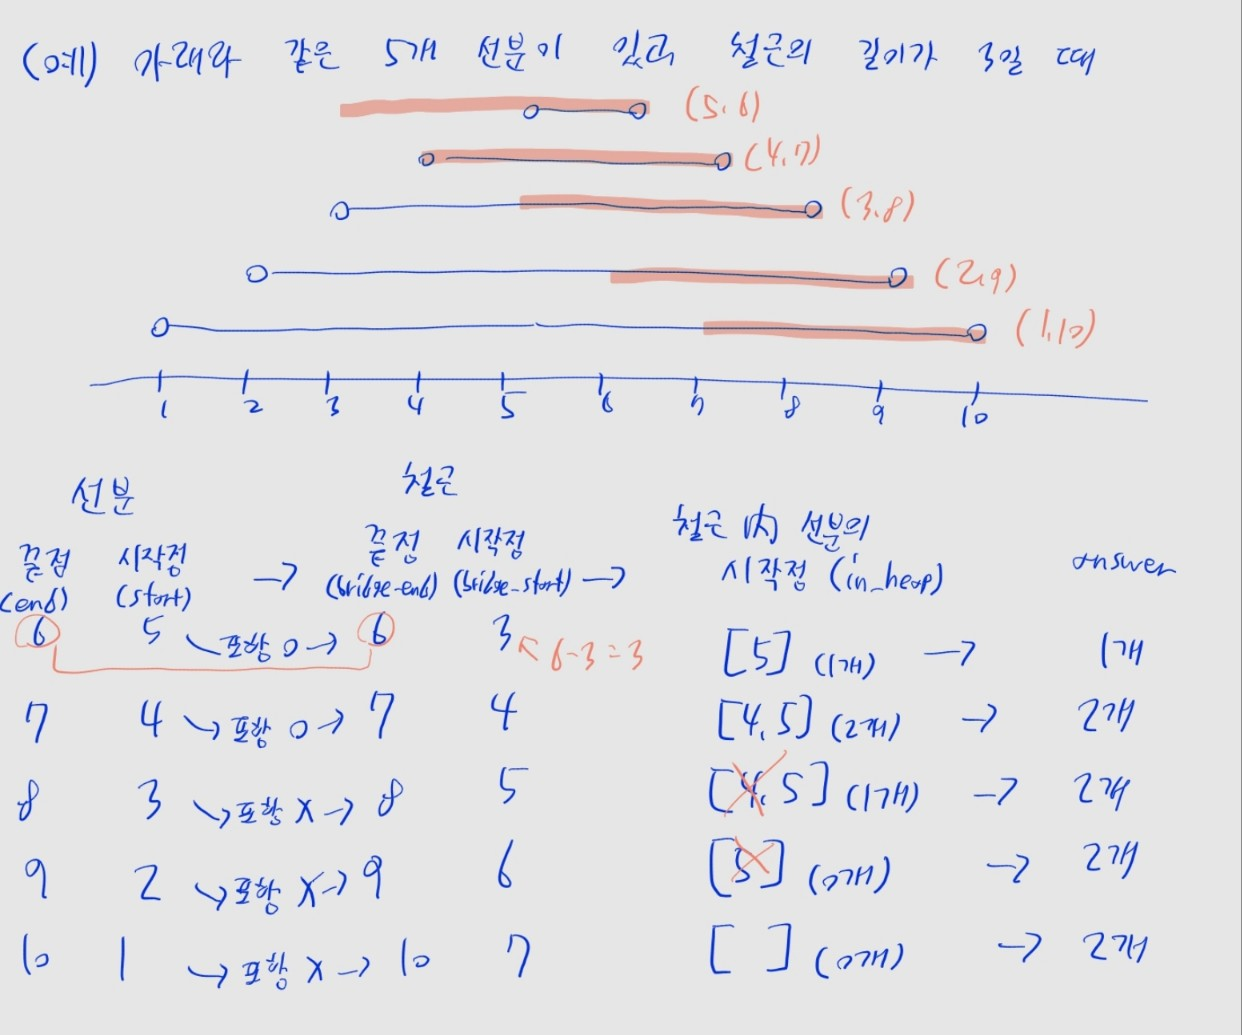 (예) 아래와 같은 5개 선분이 있고 철근의 길이가 3일 때
(5, 6)
(4, 7)
(3, 8)
(2, 9)
(1, 10)
1 2 3 4 5 6 7 8 9 10
선분 철근
철근 内 선분의
끝점 시작점 끝점 시작점
시작점 (in_heap) answer
(end) (start) → (bridge-end) (bridge_start) →
6 5 포함 o → 6 3 6-3=3 [5] (1개) → 1개
7 4 → 포함 o → 7 4 [4, 5] (2개) → 2개
8 3 → 포함 x → 8 5 [4, 5] (1개) → 2개
9 2 → 포함 x → 9 6 [5] (0개) → 2개
10 1 → 포함 x → 10 7 [ ] (0개) → 2개